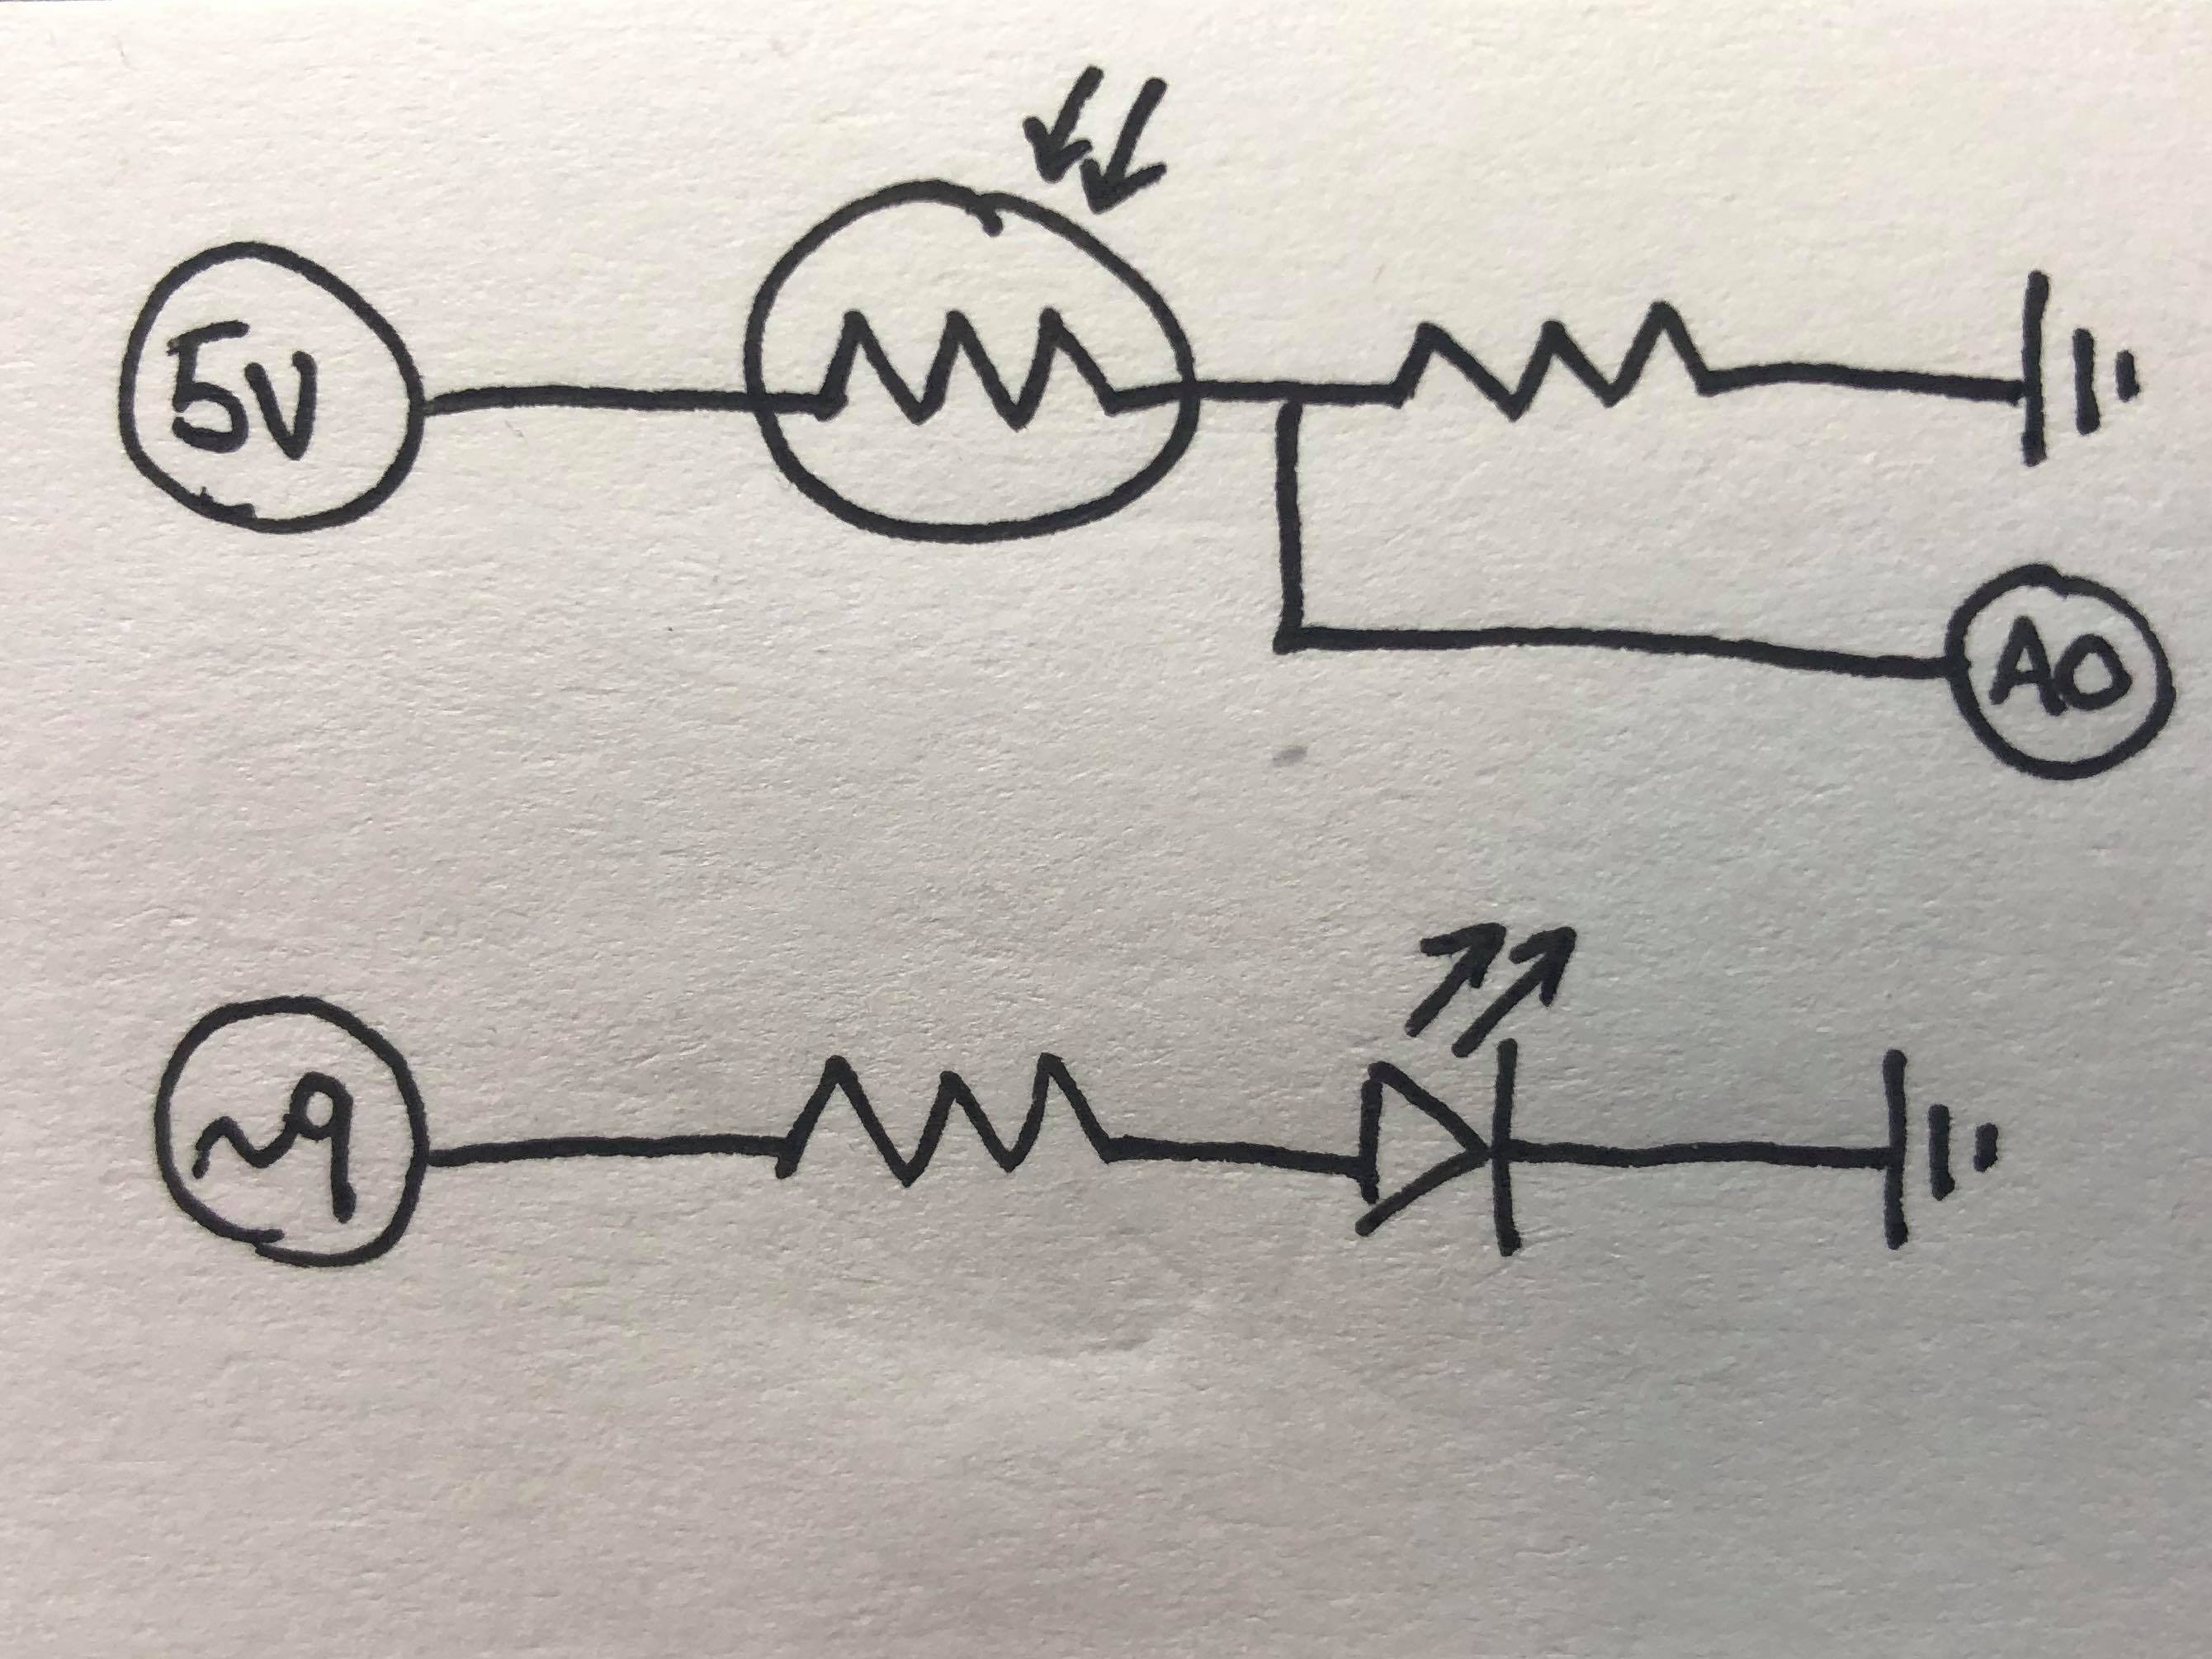 5V
A0
~9